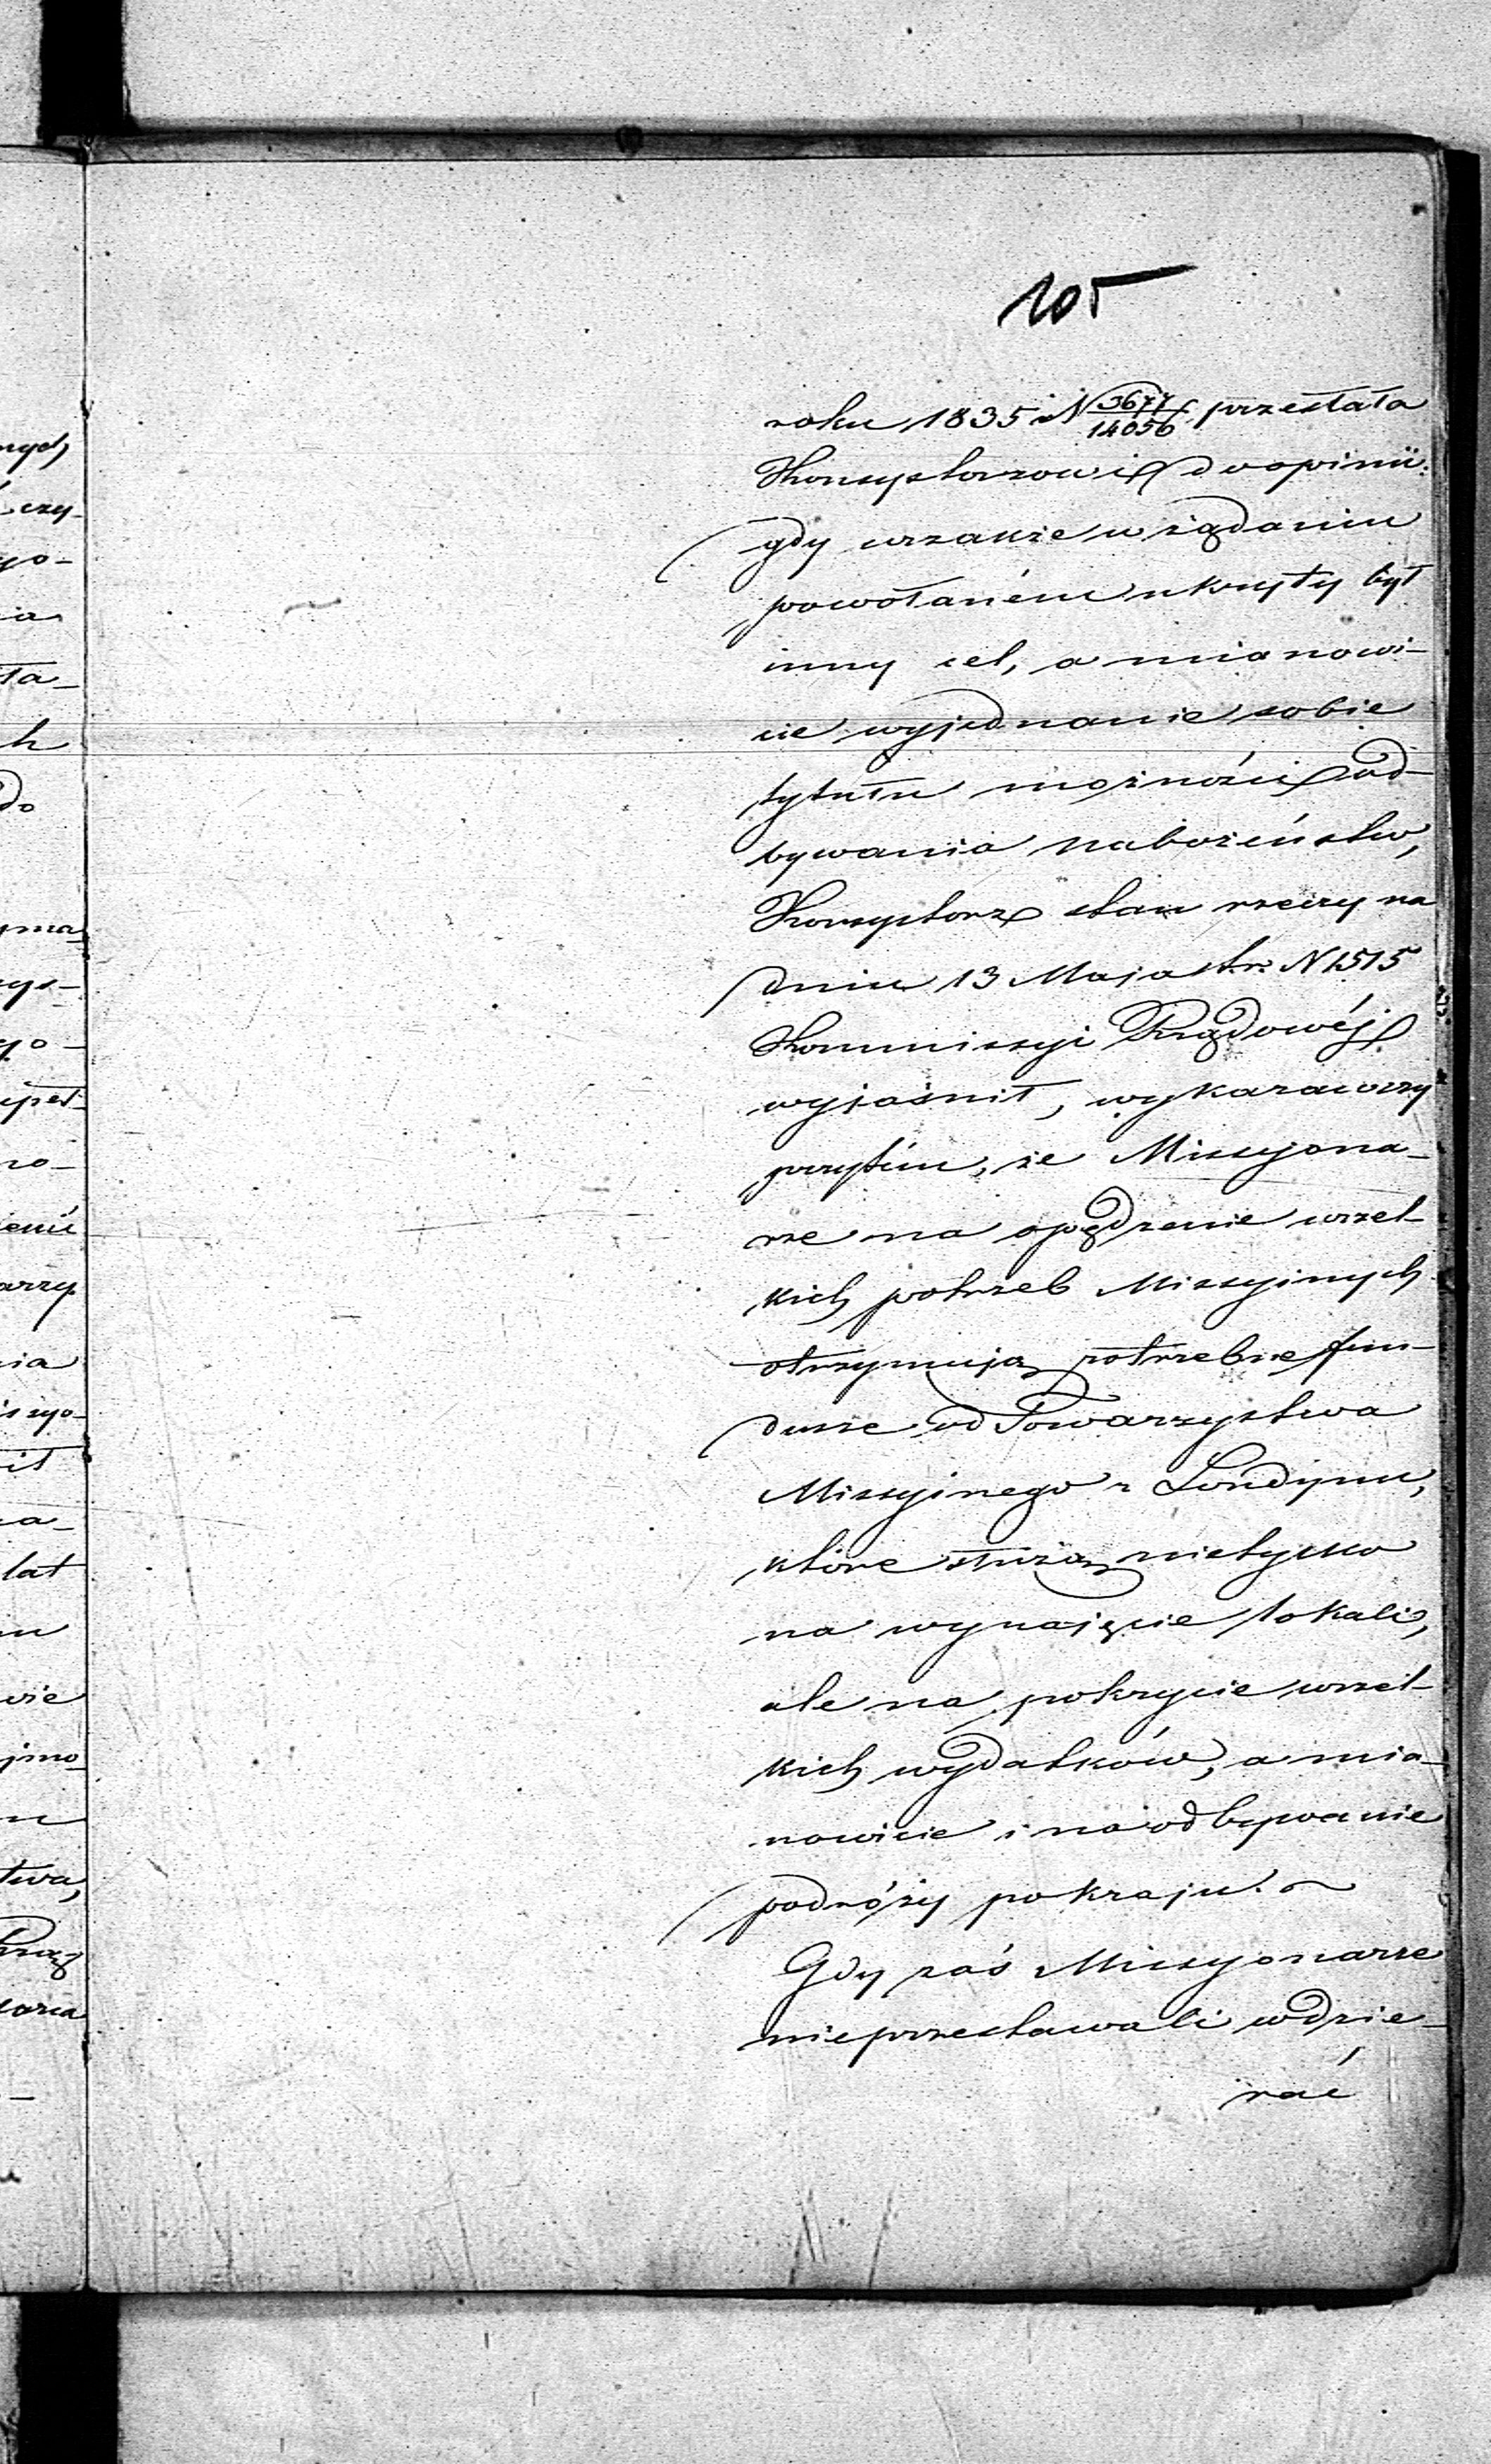 105
roku 1835 N 3677/14056 przesłała
Konsystorzowi do opinii.
gdy wszakże w żądaniu
powołaném ukryty był
inny cel, a mianowi-
cie wyjednanie sobie
tytułu możności od-
bywania nabożeństw,
Konsystorz stan rzeczy na
dniu 13 Maja t. r. N 1515
Kommissyi Rządowéj
wyjaśnił, wykazawszy
przytém, że Missyona-
rze na opędzenie wszel-
kich potrzeb Missyinych
otrzymują potrzebne fun-
dusze od Towarzystwa
Missyinego z Londynu,
które służą nietylko
na wynajęcie lokali,
ale na pokrycie wszel-
kich wydatków, a mia-
nowicie i na odbywanie
podróży po kraju.
Gdy zaś Missyonarze
nieprzestawali wdzie-
rać
nych
czy-
go-
ia
ła-
h
do
yma
go-
no-
arzy
nia
lat
wie
jmo
twa,